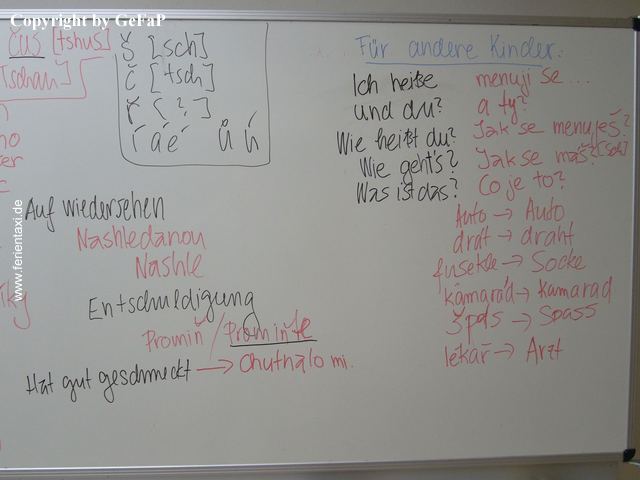 Copyright by GeFaP
čus [tshus]
[tschau]
š [sch]
č [tsch]
ř [ ? ]
í á é ů ú
no
Auf wiedersehen
Nashledanou
Nashle
Entschuldigung
Promiň / Promiňte
Hat gut geschmeckt → Chutnalo mi.
Für andere Kinder:
Ich heiße menuji se ...
und du? a ty?
Wie heißt du? Jak se menuješ?
Wie geht's? Jak se maš? [sch]
Was ist das? Co je to?
Auto → Auto
drát → draht
fusekle → Socke
kámarád → Kamarad
špás → Spass
lékař → Arzt
www.ferientaxi.de